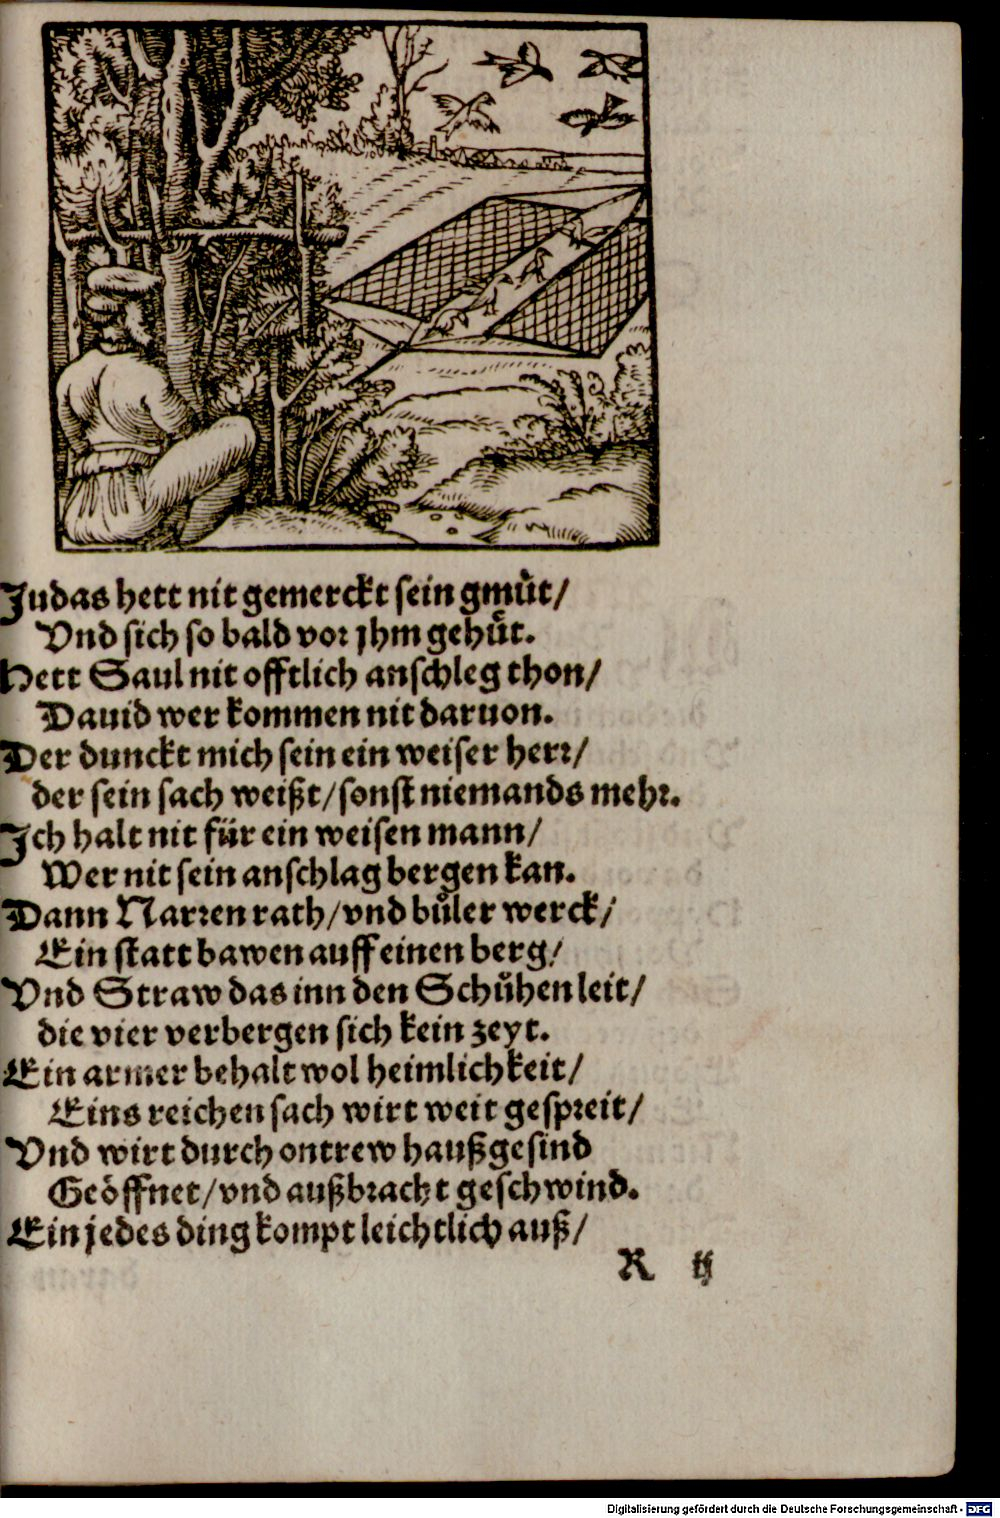 Judas hett nit gemerckt sein gmuͤt/
Vnd sich so bald vor jhm gehuͤt.
Hett Saul nit offtlich anschleg thon/
Dauid wer kommen nit daruon.
Der dunckt mich sein ein weiser herr/
der sein sach weißt/sonst niemands mehr.
Ich halt nit für ein weisen mann/
Wer nit sein anschlag bergen kan.
Dann Narren rath/vnd buͦler werck/
Ein statt bawen auff einen berg/
Vnd Straw das inn den Schuͦhen leit/
die vier verbergen sich kein zeyt.
Ein armer behalt wol heimlichkeit/
Eins reichen sach wirt weit gespreit/
Vnd wirt durch ontrew haußgesind
Geöffnet/vnd außbracht geschwind.
Ein jedes ding kompt leichtlich auß/
R ij
Digitalisierung gefördert durch die Deutsche Forschungsgemeinschaft - DFG